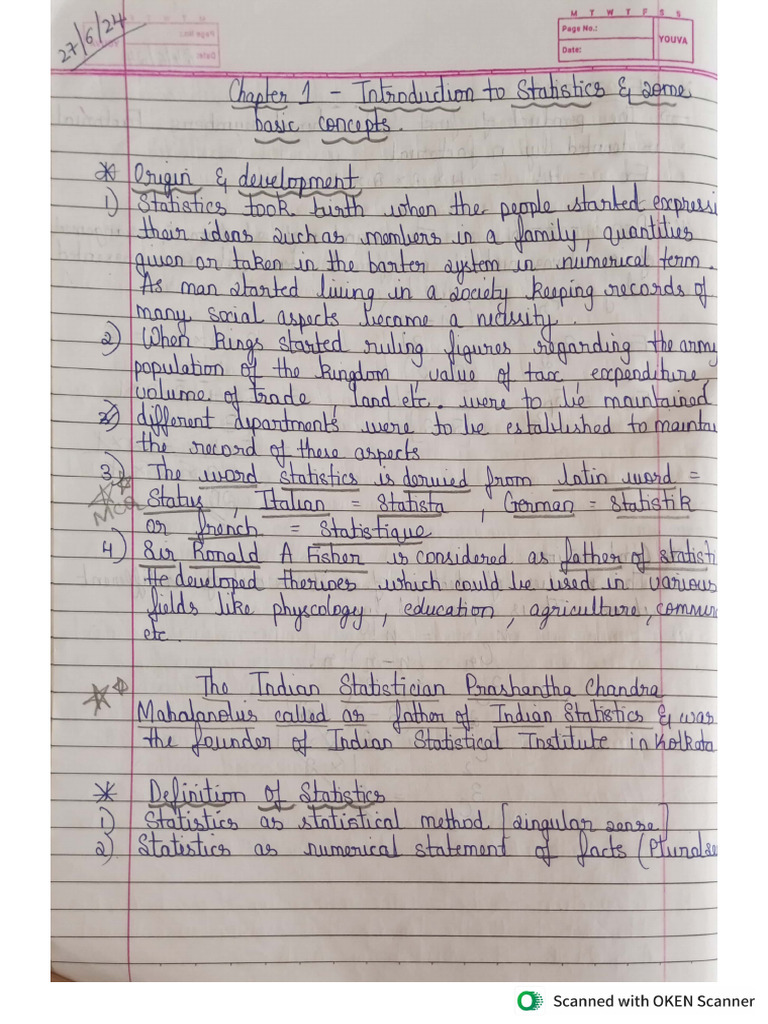 27/6/24
M T W T F S S
Page No.:
Date:
YOUVA
Chapter 1 - Introduction to Statistics & some
basic concepts.
* Origin & development
1) Statistics took birth when the people started expressi
their ideas such as members in a family, quantities
given or taken in the barter system in numerical term.
As man started living in a society keeping records of
many social aspects became a necissity.
2) When kings started ruling figures regarding the army
population of the kingdom, value of tax, expenditure,
volume of trade, land etc. were to be maintained
different departments were to be established to maintai
the record of these aspects
3) The word statistics is derived from latin word =
MCQ Status, Italian = Statista, German = Statistik
or french = Statistique
4) Sir Ronald A Fisher is considered as father of statisti
He developed therioes which could be used in various
fields like physcology, education, agriculture, commer
etc.
The Indian Statistician Prashantha Chandra
Mahalanobis called as father of Indian Statistics & was
the founder of Indian Statistical Institute in Kolkata
* Definition of Statistics
1) Statistics as statistical method [singular sense]
2) Statistics as numerical statement of facts (Plural se
Scanned with OKEN Scanner